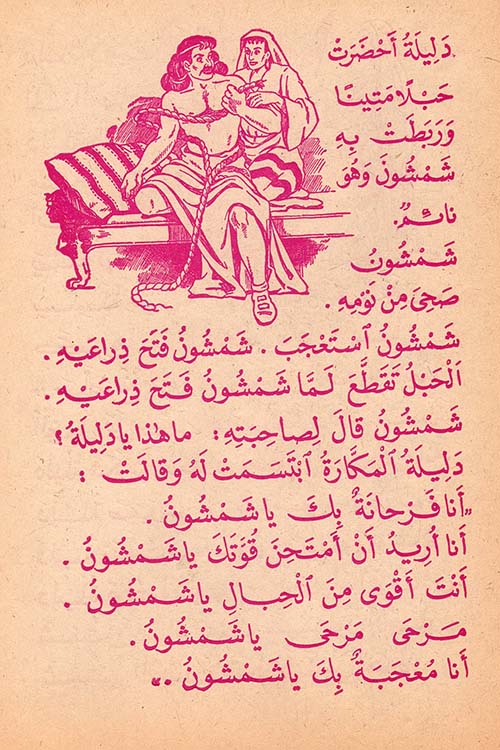 دَلِيلَةُ أَحْضَرَتْ
حَبْلًا مَتِينًا
وَرَبَطَتْ بِهِ
شَمْشُونَ وَهُوَ
نائِمٌ.
شَمْشُونُ
صَحِىَ مِنْ نَوْمِهِ .
شَمْشُونُ ٱسْتَعْجَبَ . شَمْشُونُ فَتَحَ ذِراعَيْهِ .
اَلْحَبْلُ تَقَطَّعَ لَمَّا شَمْشُونُ فَتَحَ ذِراعَيْهِ .
شَمْشُونُ قالَ لِصاحِبَتِهِ : ما هٰذا يا دَلِيلَةُ ؟
دَلِيلَةُ ٱلْمَكَّارَةُ ٱبْتَسَمَتْ لَهُ وَقالَتْ :
"أَنا فَرْحانَةٌ بِكَ يا شَمْشُونُ .
أَنا أُرِيدُ أَنْ أَمْتَحِنَ قُوَّتَكَ يا شَمْشُونُ .
أَنْتَ أَقْوَى مِنَ ٱلْحِبالِ يا شَمْشُونُ .
مَرْحَى مَرْحَى يا شَمْشُونُ .
أَنا مُعْجَبَةٌ بِكَ يا شَمْشُونُ ."